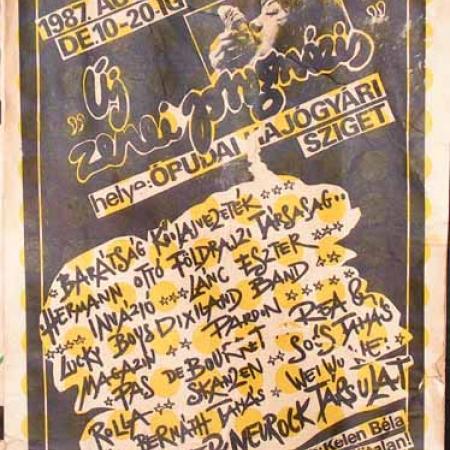 1987. AU
DE.10-20-IG
"Új
zenei
helye: ÓBUDAI HAJÓGYÁRI
SZIGET
BARÁTSÁG KŐOLAJVEZETÉK
HERMANN OTTÓ FÖLDRAJZI TÁRSASÁG..
INNÁZIÓ *** LÁNC ESZTER ***
LUCKY BOYS DIXILAND BAND
MAGAZIN *** PARDON *** REA &
PAS DE BOURNOT SOÓS TAMÁS
ROLLA *** SKANZEN *** WEI WU
BERNÁTH
NEUROCK TÁRSULAT
Kelen Béla